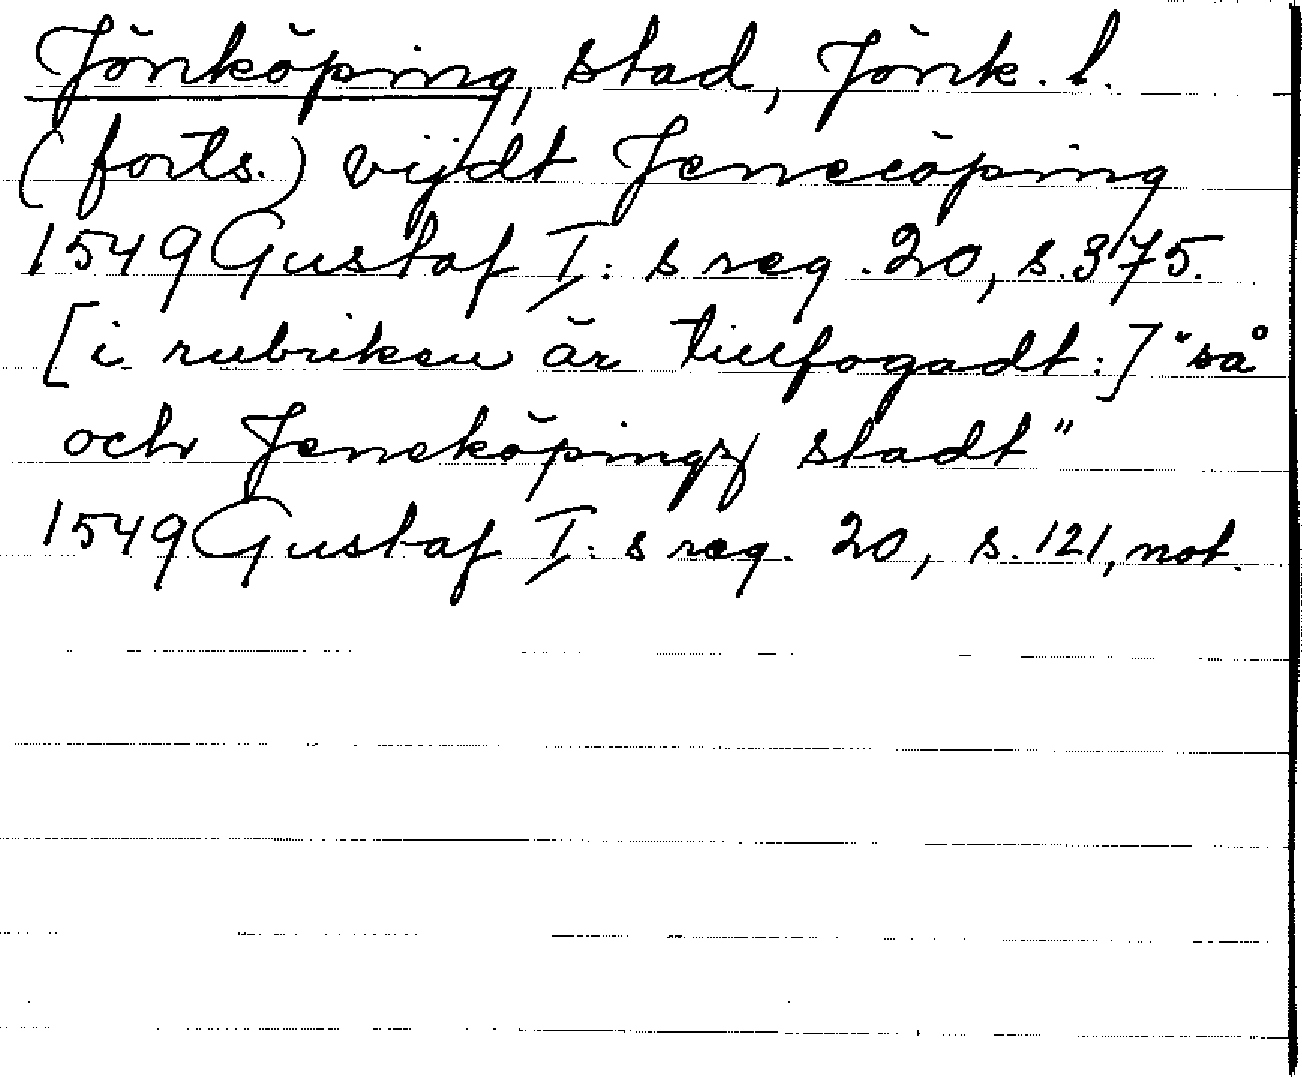 Jönköping, stad, Jönk. l.
(forts.) vijdt Jenecöping
1549 Gustaf I: s reg. 20, s. 375.
[i rubriken är tillfogadt:] "så
och Jeneköpings stadt"
1549 Gustaf I: s reg. 20, s. 121, not.